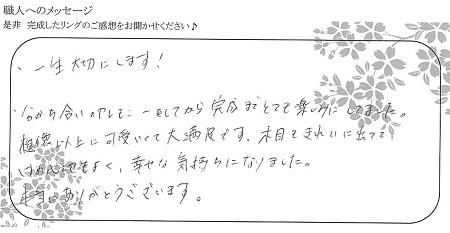 職人へのメッセージ
是非 完成したリングのご感想をお聞かせください♪
・一生大切にします!
・分かち合いのセレモニーをしてから完成までとても楽しみにしてました。
想像以上に可愛いくて大満足です。木目もきれいに出てて
はめ心地もよく、幸せな気持ちになりました。
本当にありがとうございます。